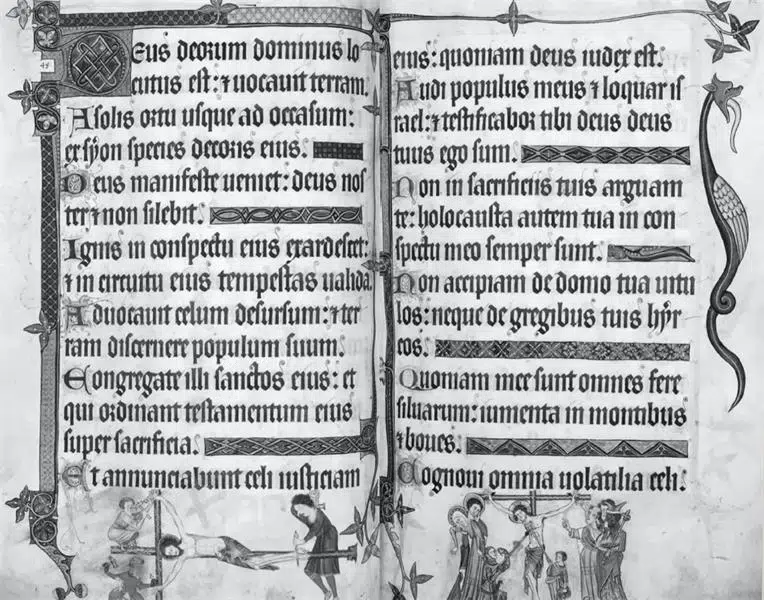 Deus deorum dominus lo
cutus est: ⁊ uocauit terram.
A solis ortu usque ad occasum:
ex syon species decoris eius.
Deus manifeste ueniet: deus nos
ter ⁊ non silebit.
Ignis in conspectu eius exardescet:
⁊ in circuitu eius tempestas ualida.
Aduocauit celum desursum: ⁊ ter
ram discernere populum suum.
Congregate illi sanctos eius: et
qui ordinant testamentum eius
super sacrificia.
Et annunciabunt celi iusticiam
eius: quoniam deus iudex est.
Audi populus meus ⁊ loquar is
rael: ⁊ testificabor tibi deus deus
tuus ego sum.
Non in sacrificiis tuis arguam
te: holocausta autem tua in con
spectu meo semper sunt.
Non accipiam de domo tua uitu
los: neque de gregibus tuis hyr
cos.
Quoniam mee sunt omnes fere
siluarum: iumenta in montibus
⁊ boues.
Cognoui omnia uolatilia celi: